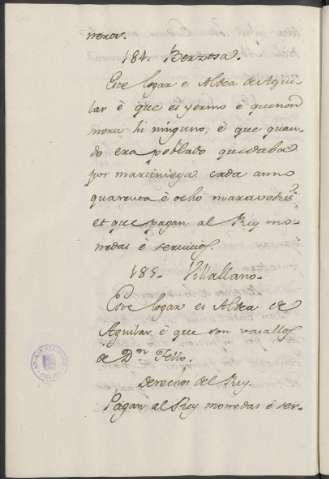 mora.
184. Berzosa.
Este logar es Aldea de Agui-
lar è que es yermo è que non
mora hi ninguno, è que quan-
do era poblado que daba
por marciniega cada anno
quarenta è ocho maravedis
et que pagan al Rey mo-
nedas è servicios.
185. Villallano.
Este logar es Aldea de
Aguilar è que son vasallos
de Dⁿ Tello.
Derechos del Rey.
Pagan al Rey monedas è ser-